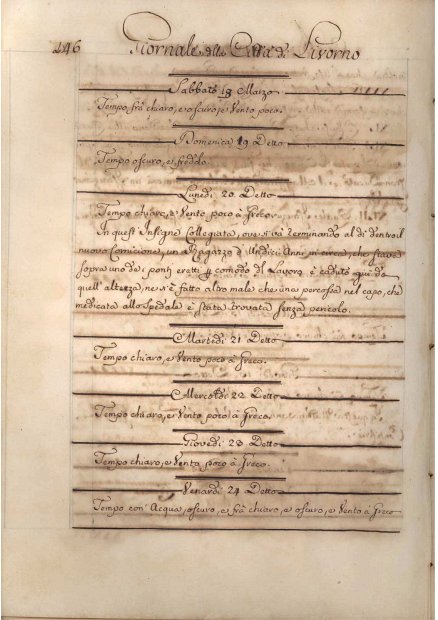 246 Giornale della Città di Livorno
Sabbato 18 Marzo
Tempo frà chiaro, e oscuro, e Vento poco.
Domenica 19 Detto
Tempo oscuro, e freddo
Lunedì 20 Detto
Tempo chiaro, e Vento poco à Greco
In quest' Insigne Collegiata, ove si và terminando al di dentro il
nuovo Cornicione, un Ragazzo d' Undici Anni in circa, che stava
sopra uno de i ponti eretti comodo Lavoro è caduto giù da
quell' altezza, ne s'è fatto altro male che una percossa nel capo, che
medicata allo Spedale è stata trovata senza pericolo.
Martedì 21 Detto
Tempo chiaro, e Vento poco à Greco.
Mercoledì 22 Detto
Tempo chiaro, e Vento poco à Greco.
Giovedì 23 Detto
Tempo chiaro, e Vento poco à Greco.
Venardì 24 Detto
Tempo con' Acqua, oscuro, e frà chiaro, e oscuro, e Vento à Greco